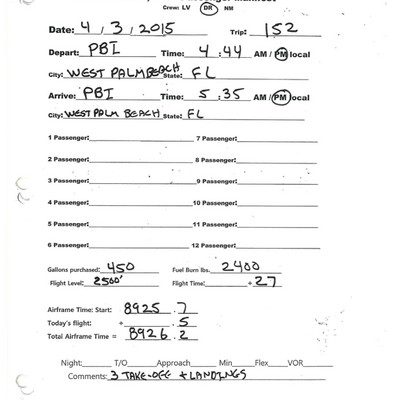 Passenger Manifest
Crew: LV DR NM
Date: 4 / 3 / 2015 Trip: 152
Depart: PBI Time: 4 : 44 AM / PM local
City: WEST PALM BEACH State: FL
Arrive: PBI Time: 5 : 35 AM / PM local
City: WEST PALM BEACH State: FL
1 Passenger: 7 Passenger:
2 Passenger: 8 Passenger:
3 Passenger: 9 Passenger:
4 Passenger: 10 Passenger:
5 Passenger: 11 Passenger:
6 Passenger: 12 Passenger:
Gallons purchased: 450 Fuel Burn lbs. 2400
Flight Level: 2500' Flight Time: + 27
Airframe Time: Start: 8925 . 7
Today's flight: + . 5
Total Airframe Time = 8926 . 2
Night: T/O Approach Min Flex VOR
Comments: 3 TAKE-OFF + LANDINGS